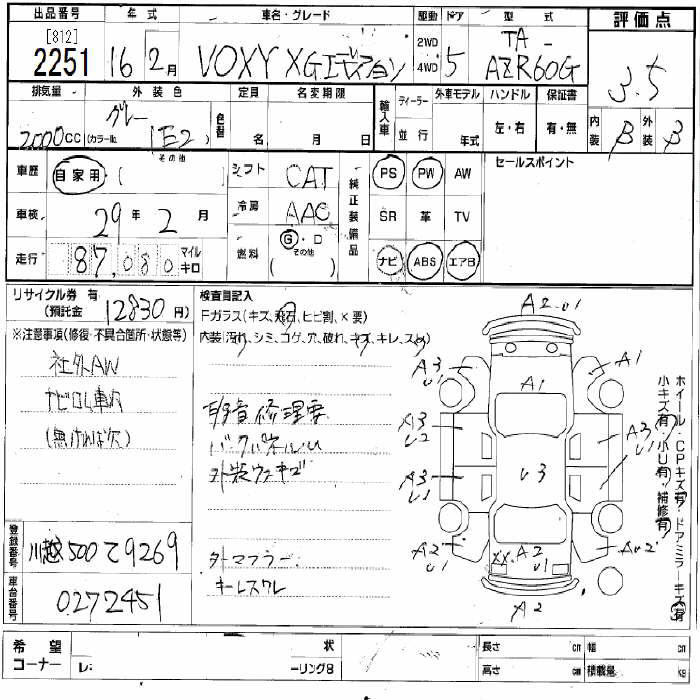 出品番号 年式 車名・グレード 駆動 ドア 型式 評価点
[812]
2251 16 2月 VOXY XGエディション 2WD 4WD 5 TA-
AZR60G
3.5
排気量 外装色 定員 名変期限 輸入車 ディーラー 外車モデル ハンドル 保証書 内装 B 外装 B
グレー
2000cc (カラーNo. 1E2 色替 名 月 日 並行 年式 左・右 有・無
車歴 自家用・( その他 シフト CAT 純正装備品 PS PW AW セールスポイント
車検 29年 2月 冷房 AAC SR 革 TV
走行 87,080 マイル キロ 燃料 G・D その他 ( ) ナビ ABS エアB
リサイクル券 有
(預託金 12830円)
※注意事項(修復・不具合箇所・状態等)
社外AW
ナビROM車内
(無ければ欠)
検査員記入
Fガラス(キズ、飛石、ヒビ割、×要)
内装(汚れ、シミ、コゲ、穴、破れ、キズ、キレ、スレ)
異音修理要
バックパネルU
外装ウキキズ
ターマフラー
キーレスクレ
A2 U1
A3 U1
A1
A1
A3 U2
A3 U1
U3
A3 U1
A2 U1
XX A2 U1
AU2
A2
ホイール・CPキズ有 ドアミラーキズ有
小キズ有 小U有 補修有
登録番号 川越 500 て 9269
車台番号 0272451
希望コーナー レ: 状 ーリング8 長さ cm 幅 cm
高さ cm 積載量 KG